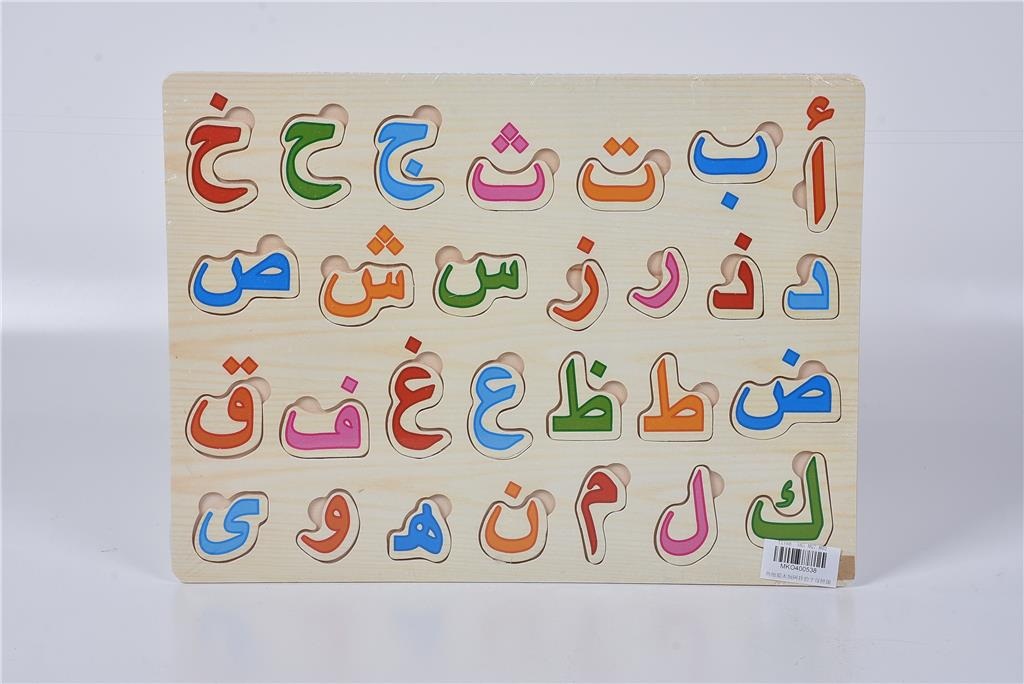 أ ب ت ث ج ح خ
د ذ ر ز س ش ص
ض ط ظ ع غ ف ق
ك ل م ن ه و ى
MKO400538